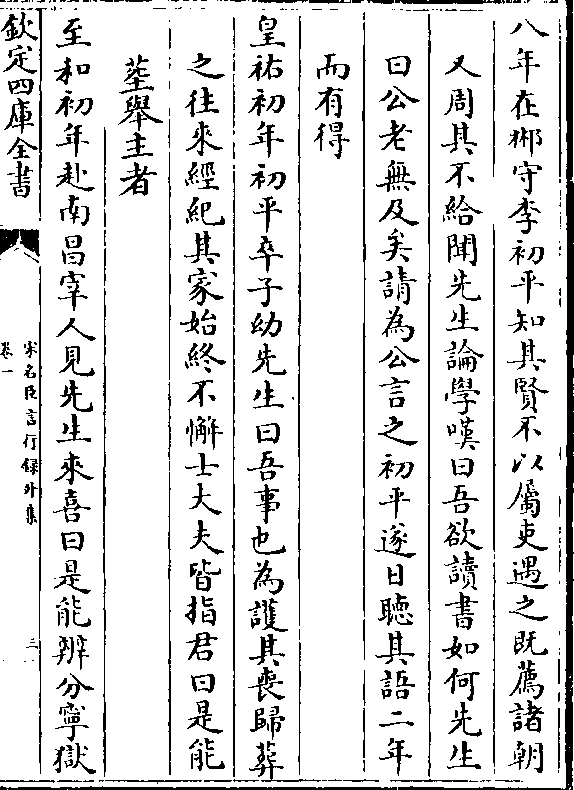 八年在郴守李初平知其賢不以屬吏遇之既薦諸朝
又周其不給聞先生論學嘆曰吾欲讀書如何先生
曰公老無及矣請為公言之初平遂日聽其語二年
而有得
皇祐初年初平卒子幼先生曰吾事也為護其喪歸葬
之往來經紀其家始終不懈士大夫皆指君曰是能
葬舉主者
至和初年赴南昌宰人見先生來喜曰是能辨分寧獄
欽定四庫全書
宋名臣言行錄外集
卷一
三